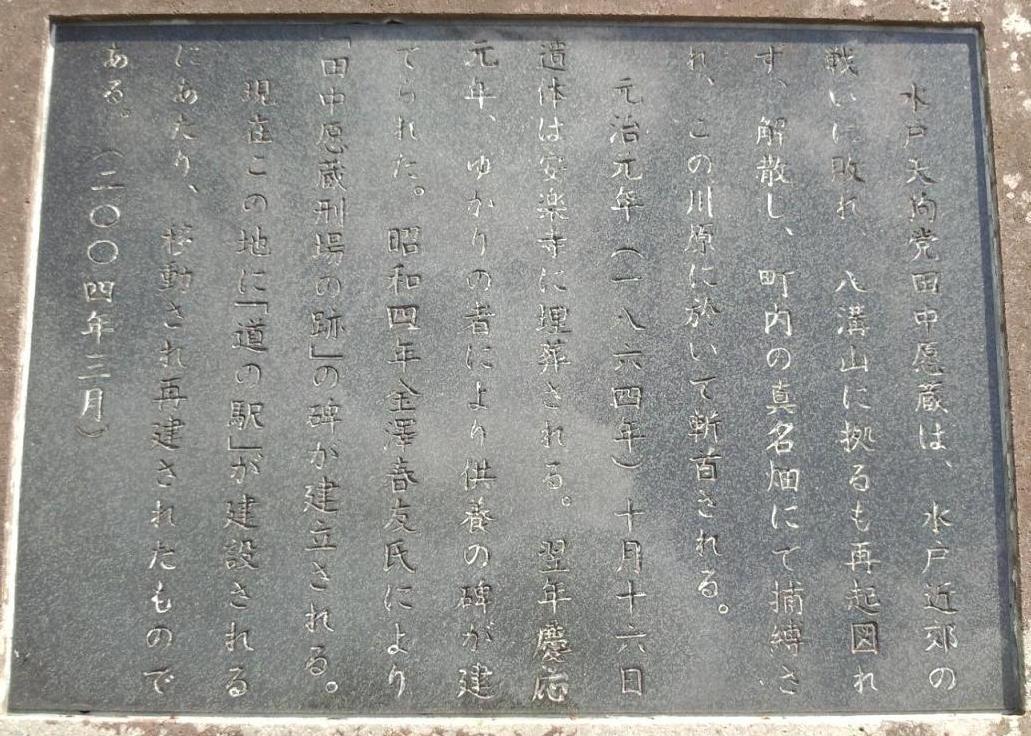 水戸天狗党田中愿蔵は、水戸近郊の
戦いに敗れ 八溝山に拠るも再起図れ
ず、解散し、町内の真名畑にて捕縛さ
れ、この川原に於いて斬首される。
元治元年(一八六四年)十月十六日
遺体は安楽寺に埋葬される。翌年慶応
元年、ゆかりの者により供養の碑が建
てられた。昭和四年金澤春友氏により
「田中愿蔵刑場の跡」の碑が建立される。
現在この地に「道の駅」が建設される
にあたり、移動され再建されたもので
ある。(二〇〇四年三月)